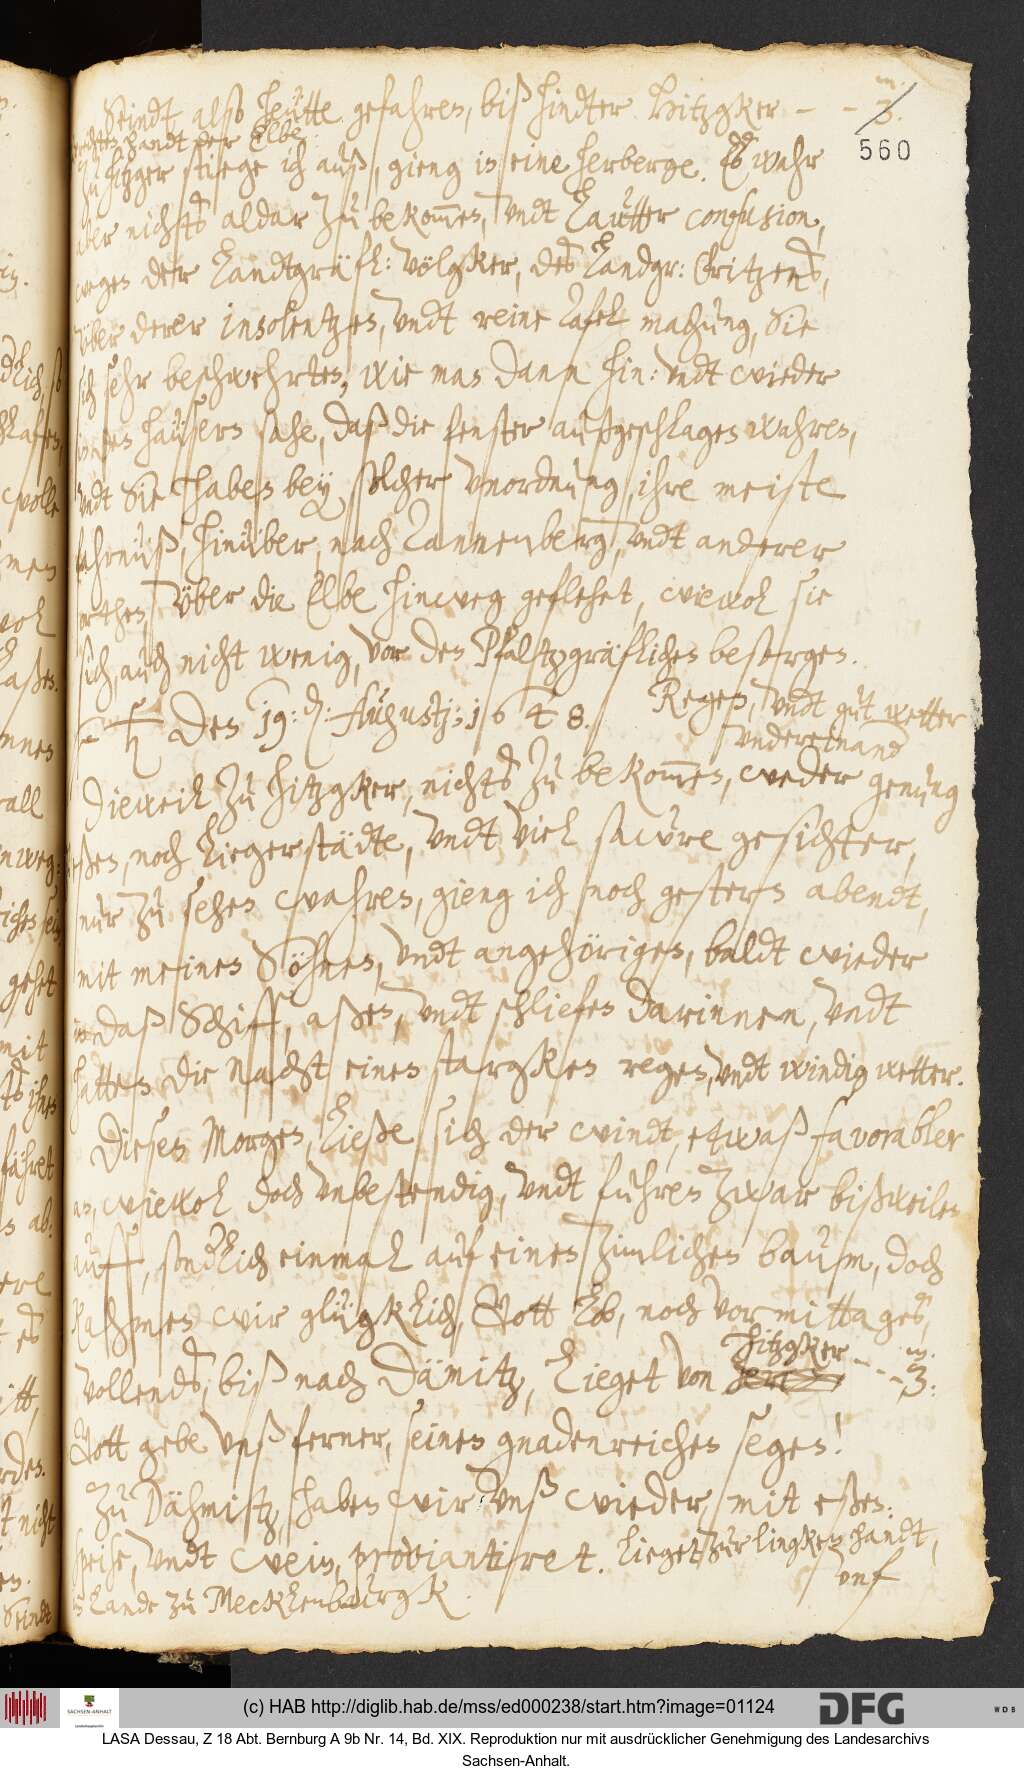 Seindt also heütte gefahren, biß hindter Hitzgker - - 3. m.
rechter handt der Elbe.
560
Zu Hitzger stiege ich auß, gieng in eine herberge. Es wahr
aber nichts aldar zu bekommen, undt lautter confusion,
wegen der Landtgräfl: völgker, des Landgr: Fritzens,
über derer insolentzen, undt reine Tafel machung, Sie
sich sehr beschwehrten, wie man dann hin: undt wieder
in den haüsern sahe, daß die fenster außgeschlagen wahren,
undt Sie haben bey solcher unordnung, ihre meiste
fahrnüß, hinüber, nach Dannenberg, undt anderer
orthen, über die Elbe hinweg geflehet, wiewol sie
sich, auch nicht wenig, vor den Pfaltzgräflichen besorgen.
♄ Den 19: d: Augustj: 1648. Regen, undt gut wetter
undereinand
Dieweil zu Hitzgker, nichts zu bekommen, weder genung
eßen, noch liegerstädte, undt viel sawre gesichter,
nur zu sehen wahren, gieng ich noch gestern abendt,
mit meinen Söhnen, undt angehörigen, baldt wieder
in daß Schiff, aßen, undt schliefen darinnen, undt
hatten die Nacht einen stargken regen, undt windig wetter.
Diesen Morgen, ließe sich der windt, etwaß favorabler
an, wiewol doch unbestendig, undt fuhren zwar bißweilen
auff, sonderlich einmal auf einen zimlichen baum, doch
kahmen wir glügklich, Gott lob, noch vormittages,
vollends, biß nach Dämitz, lieget von Hitzgker - - - 3: m.
Gott gebe unß ferner, seinen gnadenreichen segen!
Zu Dähmitz, haben wir unß wieder, mit eßen:
speise, undt wein, proviantiret. lieget zur lingken handt,
im Lande zu Mecklenburgk.
unf
(c) HAB http://diglib.hab.de/mss/ed000238/start.htm?image=01124
SACHSEN-ANHALT
DFG
WDB
LASA Dessau, Z 18 Abt. Bernburg A 9b Nr. 14, Bd. XIX. Reproduktion nur mit ausdrücklicher Genehmigung des Landesarchivs
Sachsen-Anhalt.